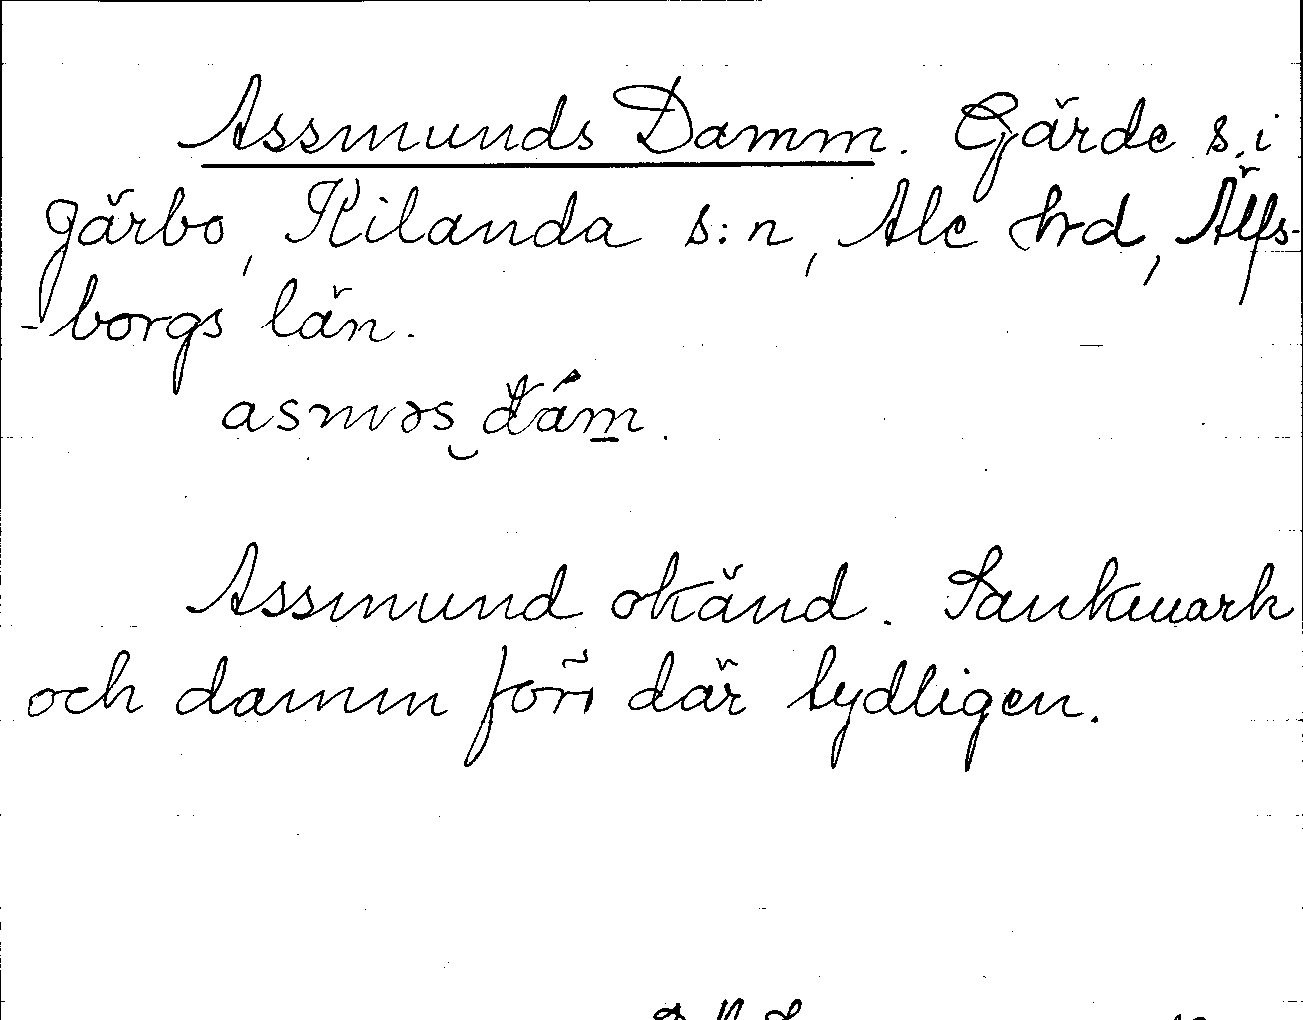 Assmunds Damm. Gärde s. i
gärbo, Kilanda s:n, Ale hrd, Älfs-
-borgs län.
asməs dám.
Assmund okänd. Sankmark
och damm förr där tydligen.